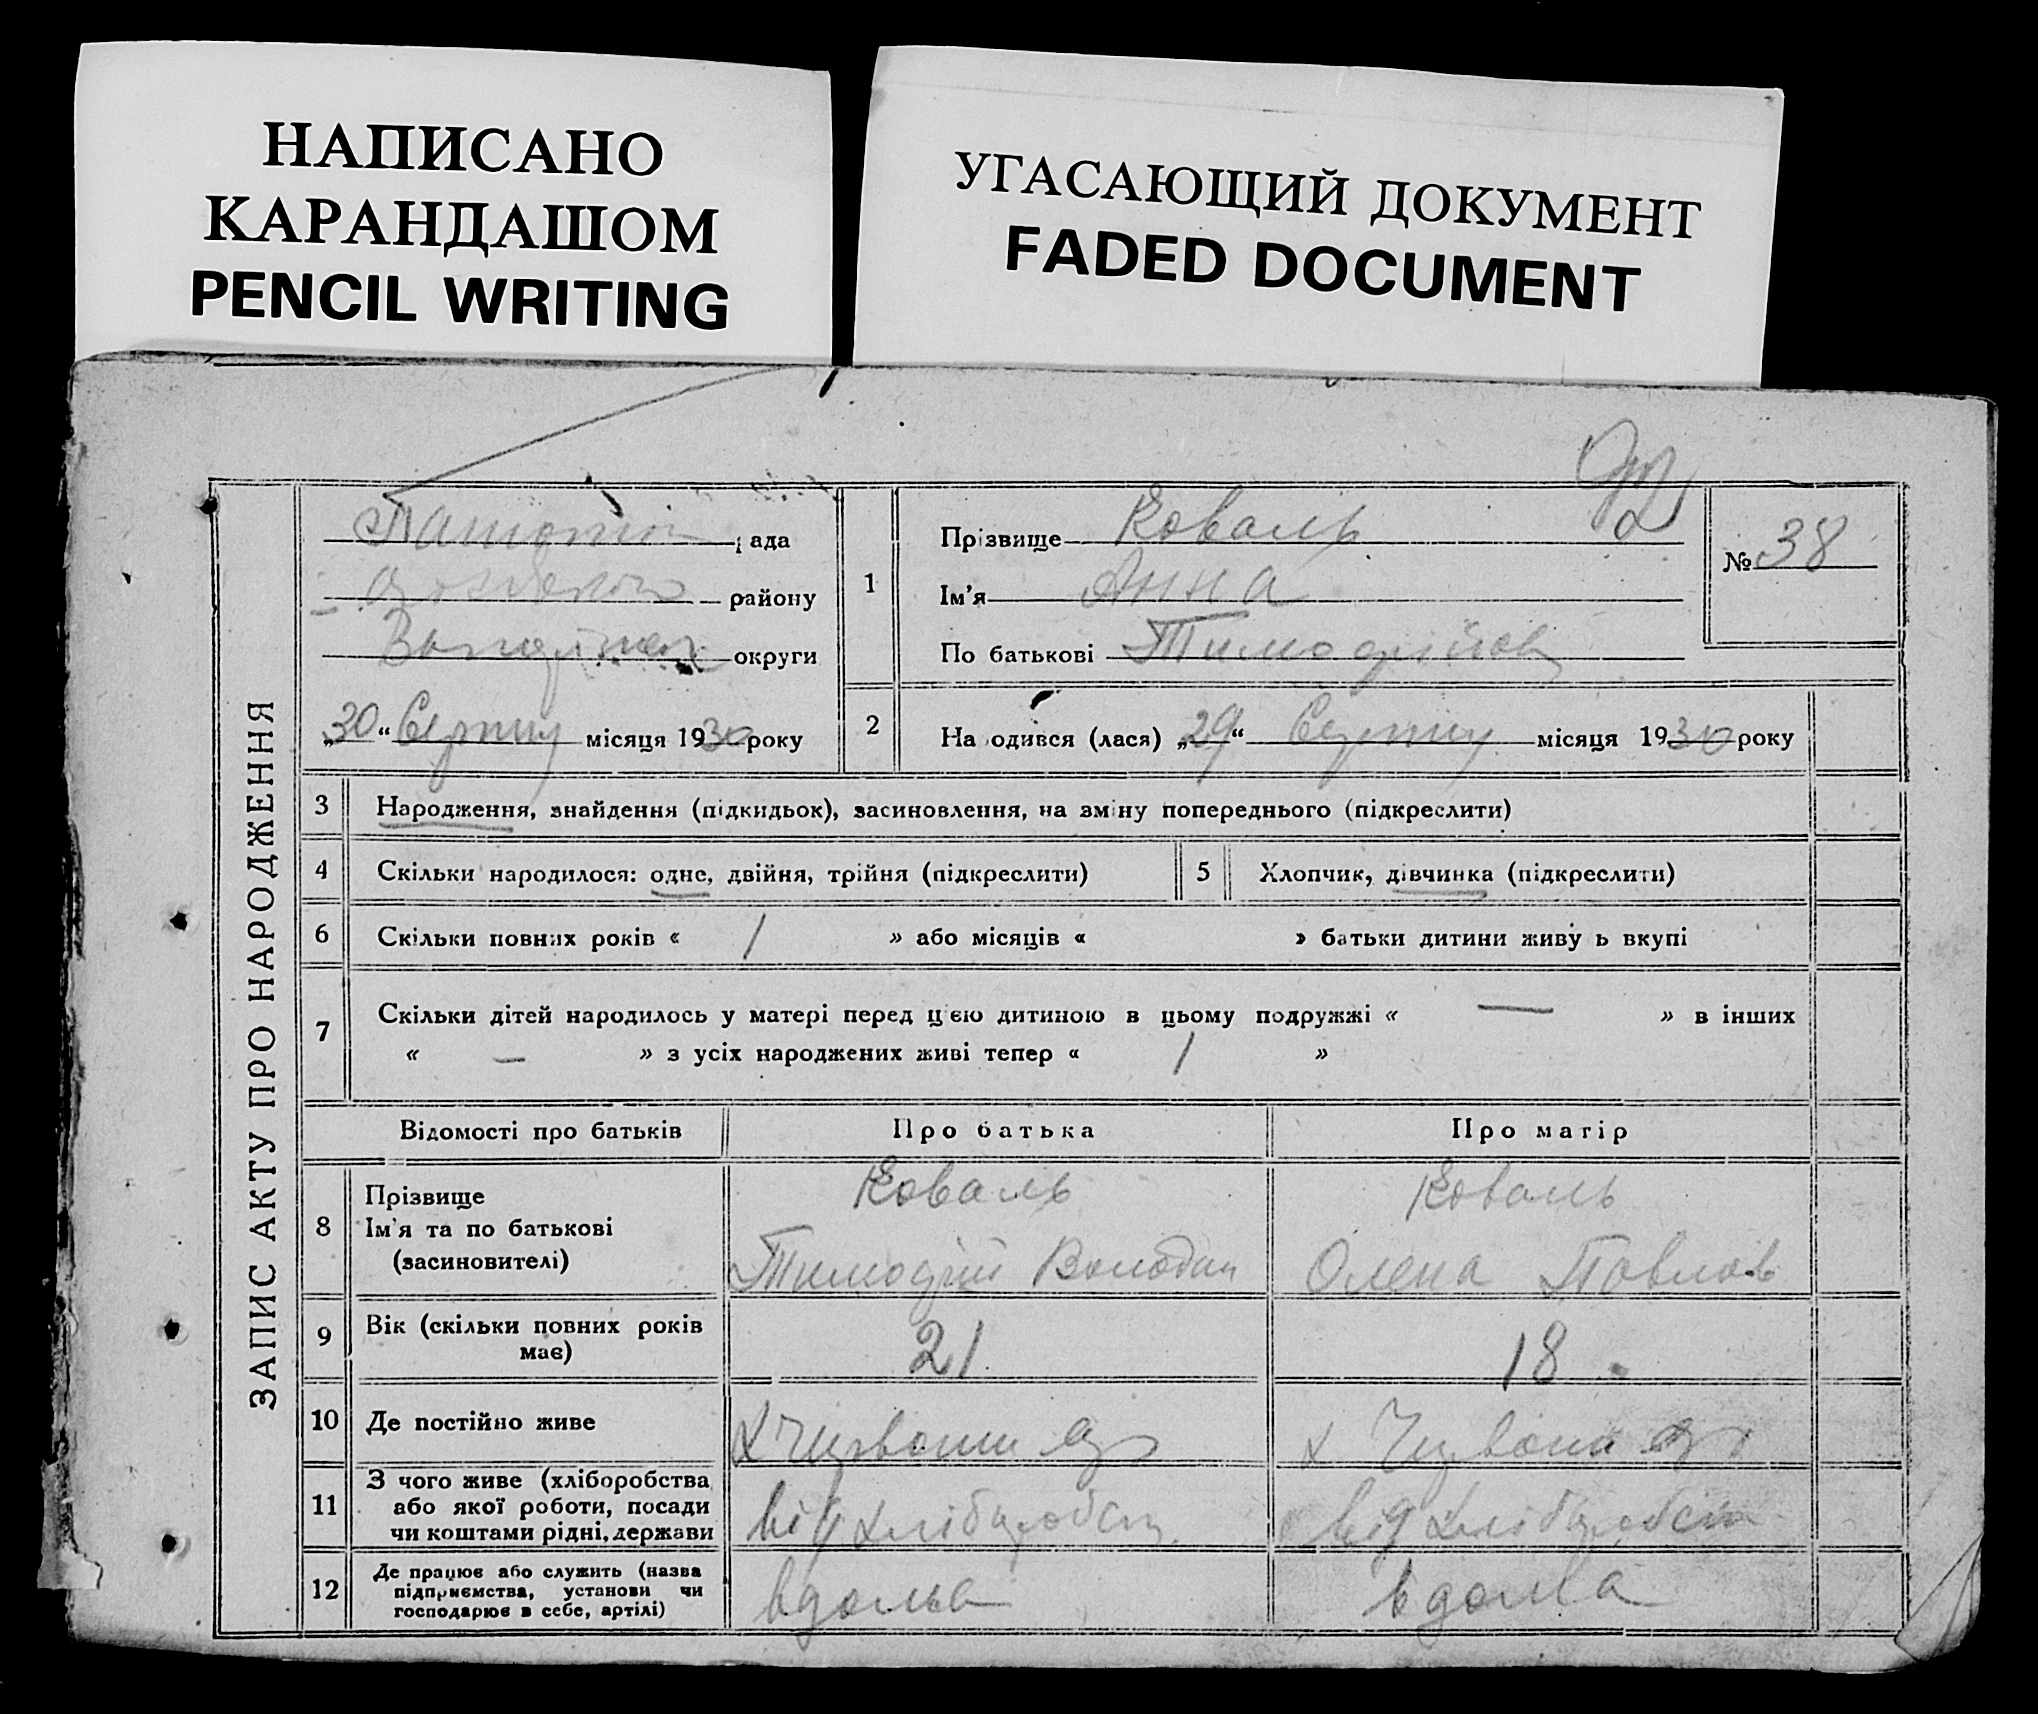 НАПИСАНО
КАРАНДАШОМ
PENCIL WRITING
УГАСАЮЩИЙ ДОКУМЕНТ
FADED DOCUMENT
ЗАПИС АКТУ ПРО НАРОДЖЕННЯ
рада
району
округи
„30“ Серпня місяця 1930 року
1
Прізвище Коваль
Ім'я Анна
По батькові Тимофіїов
№ 38
2
Народився (лася) „29“ Серпня місяця 1930 року
3 Народження, знайдення (підкидьок), засиновлення, на зміну попереднього (підкреслити)
4 Скільки народилося: одне, двійня, трійня (підкреслити) 5 Хлопчик, дівчинка (підкреслити)
6 Скільки повних років « 1 » або місяців « » батьки дитини живуть вкупі
7 Скільки дітей народилось у матері перед цією дитиною в цьому подружжі « — » в інших
« — » з усіх народжених живі тепер « 1 »
Відомості про батьків Про батька Про матір
8 Прізвище
Ім'я та по батькові
(засиновителі)
Коваль Коваль
Тимофій Володим Олена Павлов
9 Вік (скільки повних років
має)
21 18
10 Де постійно живе
х Червони х Червони
11 З чого живе (хліборобства
або якої роботи, посади
чи коштами рідні, держави
від хліборобст від хліборобств
12 Де працює або служить (назва
підприємства, установи чи
господарює в себе, артілі)
вдома вдома